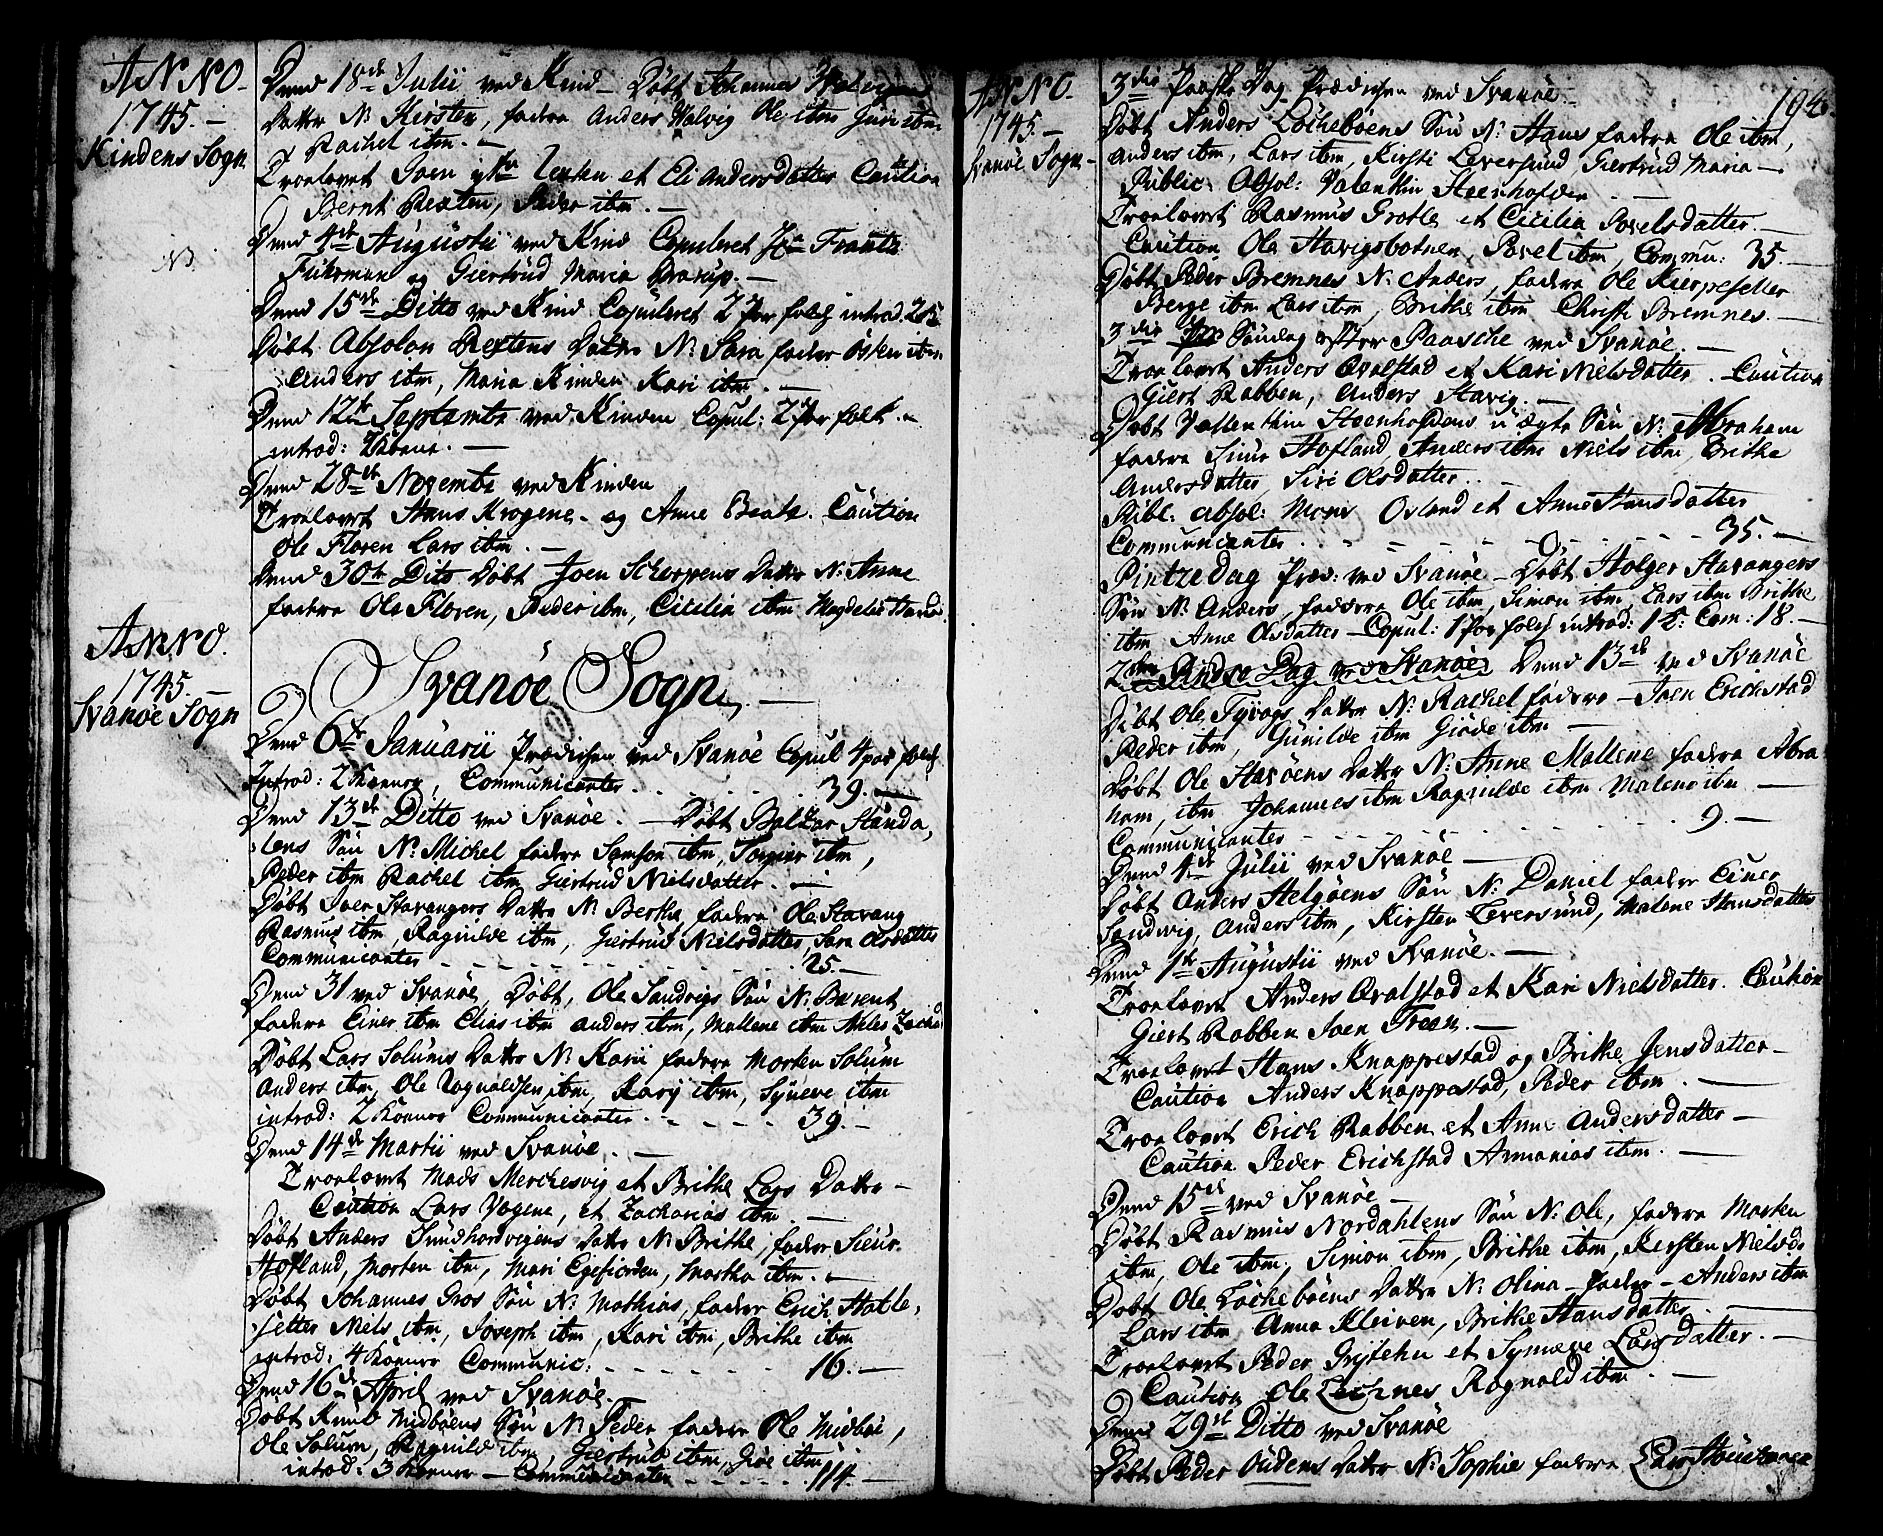 ANNO
1745.
Kindens Sogn
Dend 18de Julii ved Kind Døbt Johannes
Datter N. Kirsten, fadere Anders Halvig Ole ibm Guri ibm
Rachel ibm.
Troelovet Joen et Eli Andersdatter Caution
Bernt Rexten, Peder ibm.
Dend 4de Augustii ved Kind Copuleret Frantz
Fuhrman og Giertrud Maria
Dend 15de Ditto ved Kind Copuleret 2 Par folch introd. 2
Døbt Absolon Rextens Datter N. Sara fadere ibm
Anders ibm, Maria Kinden Kari ibm.
Dend 12te Septembr ved Kinden Copul: 2 Par folk
introd:
Dend 28de Novembr ved Kinden
Troelovet Hans Krogene og Anne Beate. Caution
Ole Floren Lars ibm.
Dend 30te Dito Døbt Joen Schorpens Datter N. Anne
fadere Ole Floren, Peder ibm, Cicilia ibm
ANNO.
1745.
Svanöe Sogn
Svanöe Sogn.
Dend 6te Januarii Prædichen ved Svanöe Copul 4 par folch
Introd: 2 Koener, Communicanter 39.
Dend 13de Ditto ved Svanöe. Døbt Baltzar Stånda,
lens Søn N. Michel fadere Samson ibm, ibm,
Peder ibm Rachel ibm Giertrud Nielsdatter.
Døbt Joen Stavangers Datter N. Bertha, fadere Ole Stavang
Rasmus ibm, Ragnilde ibm, Giertrud Nielsdatter, Sara Olsdatter
Communicanter 25.
Dend 31 ved Svanöe, Døbt, Ole Sandvigs Søn N. Barent
fadere Einer ibm Elias ibm Anders ibm, Mallene ibm Niels
Døbt Lars Solums Datter N. Karii fadere Morten Solum
Anders ibm, Ole ibm, Karj ibm, Syneve ibm
introd: 2 Koener Communicanter 39.
Dend 14de Martii ved Svanöe.
Troelovet Mads Merchesvig et Brithe Lars Datter
Caution Lars Vogene, et Zacharias ibm
Døbt Anders Datter N. Brithe, fadere Sieur
Hofland, Morten ibm, Mari Egefiorden, Martha ibm.
Døbt Johannes Gros Søn N. Mathias, fadere Erich Hatle,
setter Niels ibm, Joseph ibm, Kari ibm, Brithe ibm
introd: 4 Koener Communic: 16.
Dend 16de April ved Svanöe.
Døbt Knud Midbøens Søn N. Peder fadere Ole Midbøe,
Ole Solum, Ragnilde ibm, Giertrud ibm, ibm
introd: 3 Koener Communicanter 114.
ANNO.
1745.
Svanöe Sogn
3die Paaske Dag Prædichen ved Svanöe.
Døbt Anders Løchebøens Søn N. Hans fadere Ole ibm,
Anders ibm, Lars ibm, Kirsti Leversund, Giertrud Maria
Public: Absol: Valentin Steenhofden
Troelovet Rasmus Grotle et Cicilia Povelsdatter.
Caution Ole Havigsbotnen, Povel ibm, Commu: 35.
Døbt Peder Bremnes N. Anders, fadere Ole Kierpesetter
Berge ibm Lars ibm, Brithe ibm Christi Bremnes.
3die Søndag efter Paasche ved Svanöe.
Troelovet Anders Qvalstad et Kari Nielsdatter. Caution
Giert Rabben, Anders Havig.
Døbt Vallenthin Steenhofdens u ægte Søn N. Abraham
fadere Siur Hofland, Anders ibm Niels ibm Brithe
Andersdatter, Siri Olsdatter.
Publ: Absol: Mons Osland et Anne Hansdatter
Communicanter 35.
Pintzedag Præd: ved Svanöe Døbt Holger Stavangers
Søn N. Anders, faddere Ole ibm, Simon ibm, Lars ibm Brithe
ibm Anne Olsdatter Copul: 1 Par folch introd: 1 K: Com: 18.
2den Pindse Dag ved Svanöe Dend 13de ved Svanöe
Døbt Ole Tyvogs Datter N. Rachel fadere Joen Erichstad
Peder ibm, Gunilde ibm Giøde ibm
Døbt Ole Havøens Datter N. Anne Mallene fadere Abra
ham, ibm Johannes ibm Ragnilde ibm Malene ibm
Communicanter 9.
Dend 4de Julii ved Svanöe
Døbt Anders Helgøens Søn N. Daniel fadere Einer
Sandvig, Anders ibm, Kirsten Leversund, Malene Hansdatter
Dend 1te Augustii ved Svanöe.
Troelovet Anders Qvalstad et Kari Nielsdatter. Caution
Giert Rabben Joen Treen.
Troelovet Hans Knappestad og Brithe Jensdatter
Caution Anders Knappestad, Peder ibm.
Troelovet Erich Rabben et Anne Andersdatter
Caution Peder Erichstad Annanias ibm.
Dend 15de ved Svanöe
Døbt Rasmus Nordahlens Søn N. Ole, fadere Morten
ibm, Ole ibm, Simon ibm, Brithe ibm, Kirsten Nielsd.
Døbt Ole Løchebøens Datter N. Olina fader Anders ibm
Lars ibm Anna Kleiven, Brithe Hansdatter
Troelovet Peder et Synneve Larsdatter.
Caution Ole Lechnes Ragnald ibm.
Dend 29de Ditto ved Svanöe
Døbt Peder Oudens Datter N. Sophie fadere Lars